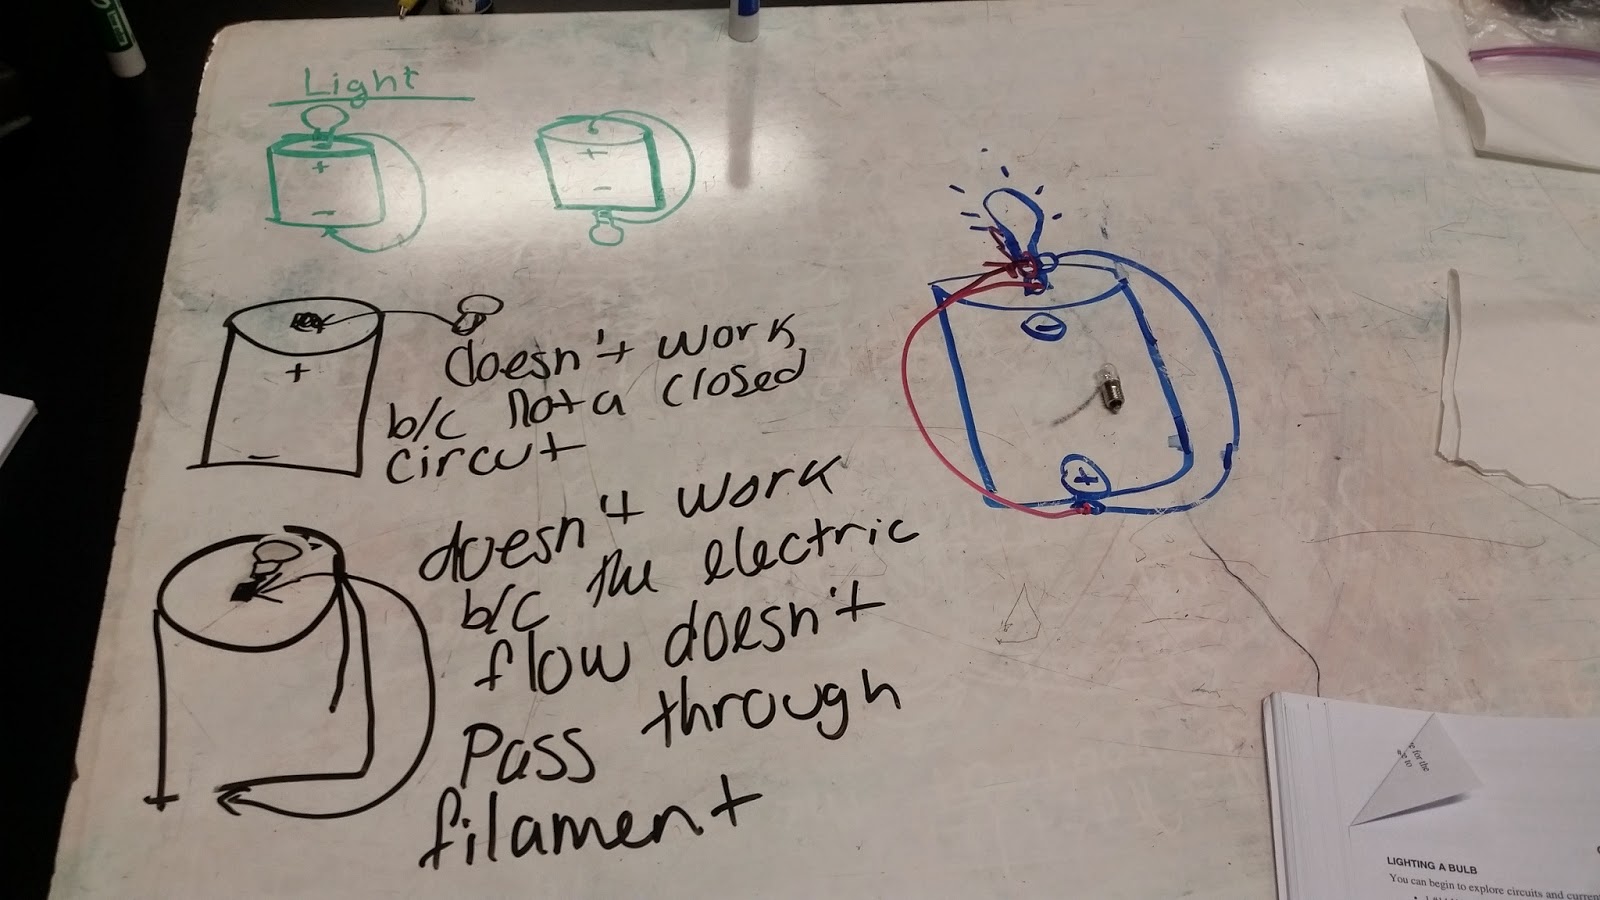 Light
+
-
+
-
-
+
+
-
doesn't work
b/c not a closed
circut
doesn't work
b/c the electric
flow doesn't
pass through
filament
+
e for the
LIGHTING A BULB
You can begin to explore circuits and current